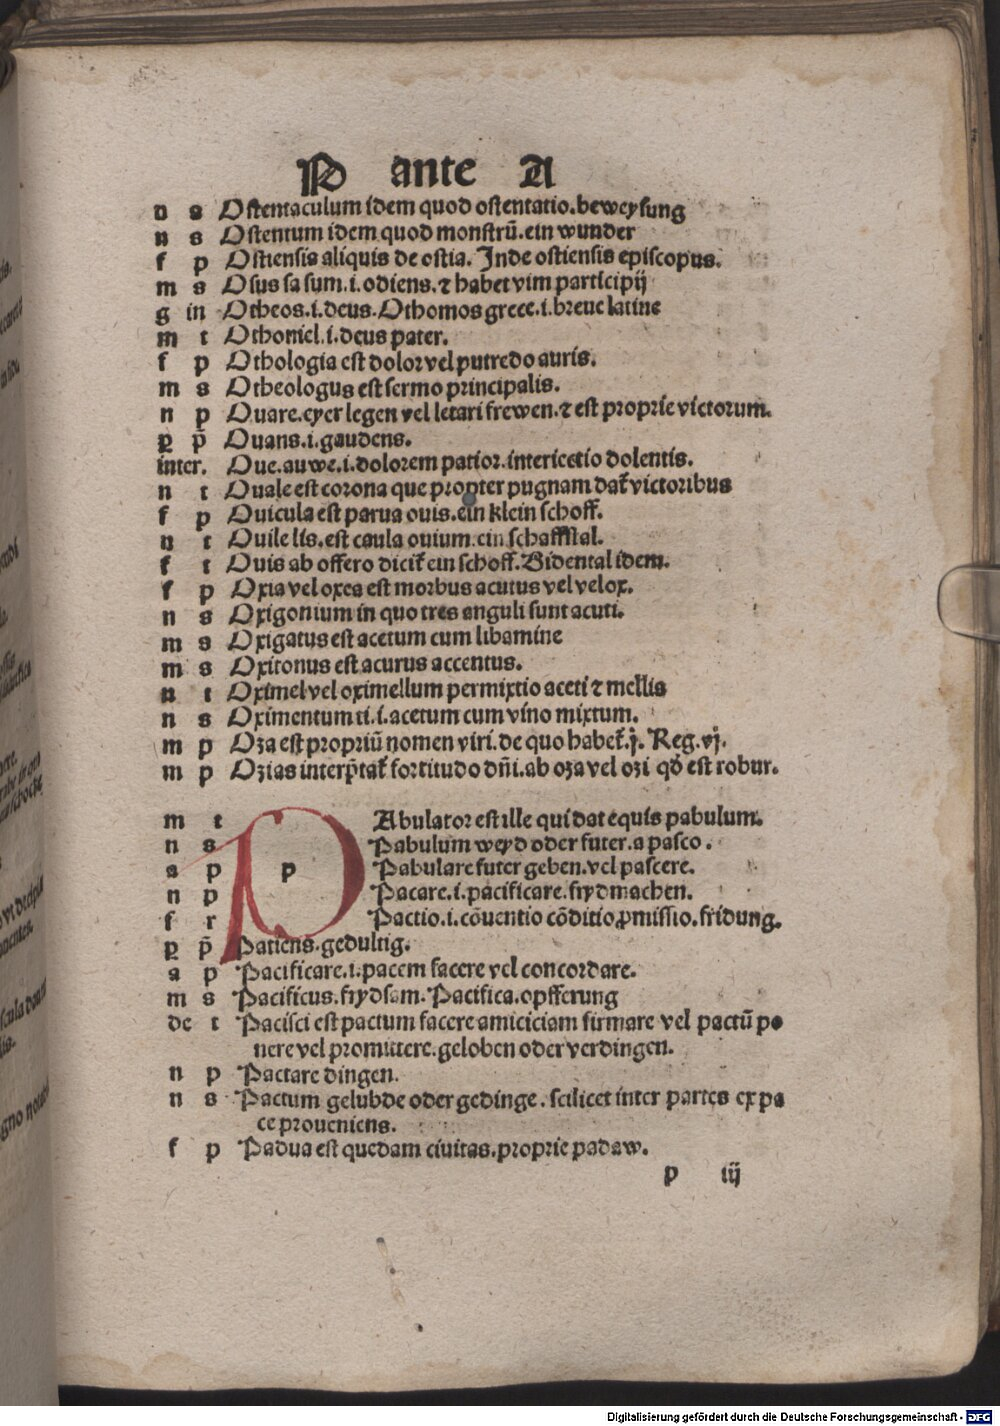 P ante A
n s Ostentaculum idem quod ostentatio.beweysung
n s Ostentum idem quod monstrū.ein wunder
f p Ostiensis aliquis de ostia. Inde ostiensis episcopus.
m s Osus sa sum.i.odiens.⁊ habet vim participij
g in Otheos.i.deus.Othomos grece.i.breue latine
m t Othoniel.i.deus pater.
f p Othologia est dolor vel putredo auris.
m s Otheologus est sermo principalis.
n p Ouare.eyer legen vel letari frewen.⁊ est proprie victorum.
ꝑ p̄ Ouans.i.gaudens.
inter. Oue.auwe.i.dolorem patior.intericetio dolentis.
n t Ouale est corona que propter pugnam dat̄ victoribus
f p Ouicula est parua ouis.ein klein schoff.
n t Ouile lis.est caula ouium.ein schaffstal.
f t Ouis ab offero dicit̄ ein schoff.Bidental idem.
f p Oxia vel oxea est morbus acutus vel velox.
n s Oxigonium in quo tres anguli sunt acuti.
m s Oxigatus est acetum cum libamine
m s Oxitonus est acurus accentus.
n t Oximel vel oximellum permixtio aceti ⁊ mellis
n s Oximentum ti.i.acetum cum vino mixtum.
m p Oza est propriū nomen viri.de quo habet̄.j. Reg.vj.
m p Ozias interp̄tat̄ fortitudo dn̄i.ab oza vel ozi qd̄ est robur.
m t PAbulator est ille qui dat equis pabulum.
n s Pabulum weyd oder futer.a pasco.
a p p Pabulare futer geben.vel pascere.
n p Pacare.i.pacificare.frydmachen.
f r Pactio.i.cōuentio cōditio ꝓmissio.fridung.
ꝑ p̄ Patiens.gedultig.
a p Pacificare.i.pacem facere vel concordare.
m s Pacificus.frydsam.Pacifica.opfferung
de t Pacisci est pactum facere amiciciam firmare vel pactū po
nere vel promittere.geloben oder verdingen.
n p Pactare dingen.
n s Pactum gelubde oder gedinge.scilicet inter partes ex pa
ce proueniens.
f p Padua est quedam ciuitas.proprie padaw.
p iij
Digitalisierung gefördert durch die Deutsche Forschungsgemeinschaft - DFG